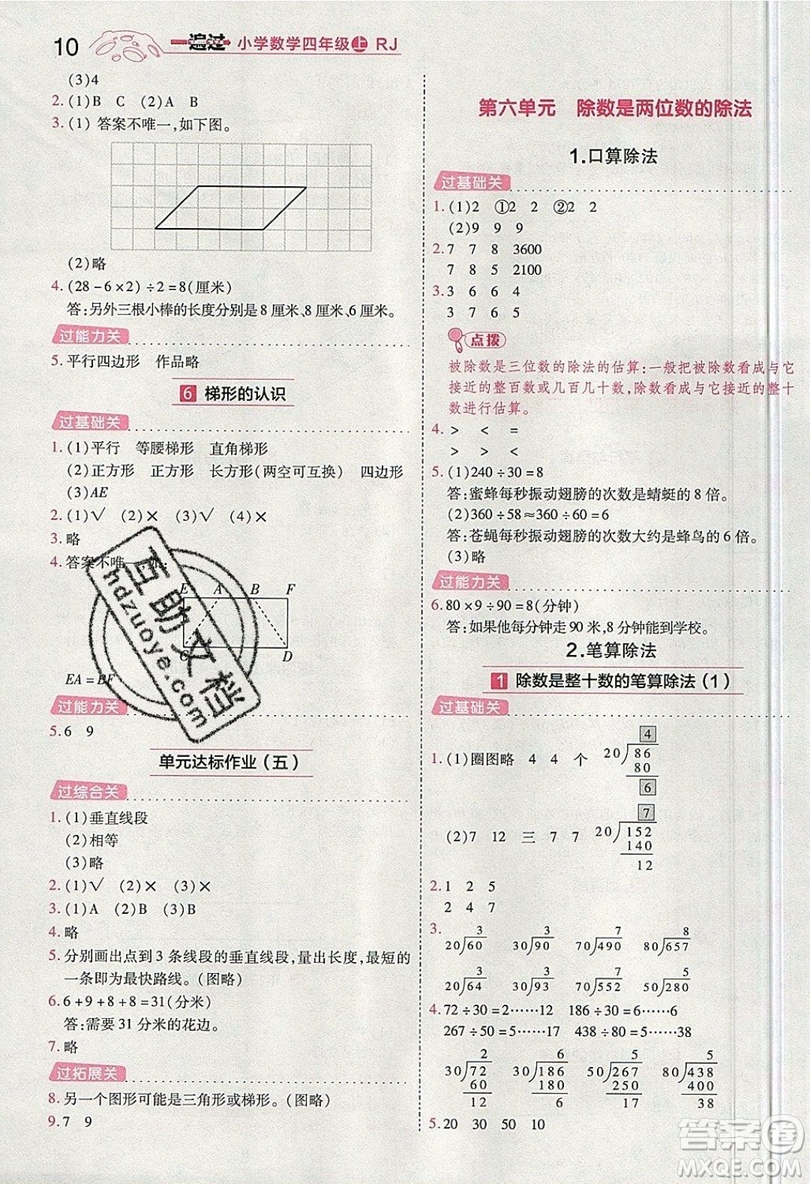 10 一遍过 小学数学四年级上 RJ
(3)4
2.(1)B C (2)A B
3.(1) 答案不唯一,如下图。
(2)略
4.(28-6×2)÷2=8(厘米)
答:另外三根小棒的长度分别是8厘米、8厘米、6厘米。
过能力关
5.平行四边形 作品略
6 梯形的认识
过基础关
1.(1)平行 等腰梯形 直角梯形
(2)正方形 正方形 长方形(两空可互换) 四边形
(3)AE
2.(1)√ (2)× (3)× (4)√
3.略
4.答案不唯一,如:
E A B F
C D
EA=BF
过能力关
5.6 9
单元达标作业(五)
过综合关
1.(1)垂直线段
(2)相等
(3)略
2.(1)√ (2)× (3)×
3.(1)A (2)B (3)D
4.略
5.分别画出点到3条线段的垂直线段,量出长度,最短的
一条即为最快路线。(图略)
6.6+9+8+8=31(分米)
答:需要31分米的花边。
7.略
过拓展关
8.另一个图形可能是三角形或梯形。(图略)
9.7 9
第六单元 除数是两位数的除法
1.口算除法
过基础关
1.(1)2 ①2 2 ②2 2
(2)9 9 9
2.7 7 8 3600
7 8 5 2100
3.3 6 6 4
3 7 6 5
点拨
被除数是三位数的除法的估算:一般把被除数看成与它
接近的整百数或几百几十数,除数看成与它接近的整十
数进行估算。
4.> < =
> > <
5.(1)240÷30=8
答:蜜蜂每秒振动翅膀的次数是蜻蜓的8倍。
(2)360÷58≈360÷60=6
答:苍蝇每秒振动翅膀的次数大约是蜂鸟的6倍。
(3)略
过能力关
6.80×9÷90=8(分钟)
答:如果他每分钟走90米,8分钟能到学校。
2.笔算除法
1 除数是整十数的笔算除法(1)
过基础关
4
1.(1)圈图略 4 4 个 20)86
80
6
7
(2)7 12 三 7 7 20)152
140
12
2.1 2 2 5
2 4 4 7
3. 3 3 7 8
20)60 30)90 70)490 80)657
4.72÷30=2……12 186÷30=6……6
267÷50=5……17 438÷80=5……38
2 6 5 5
30)72 30)186 50)267 80)438
60 180 250 400
12 6 17 38
5.20 30 50 10
互助文档
hdzuoye.com
答案圈
MXQE.COM